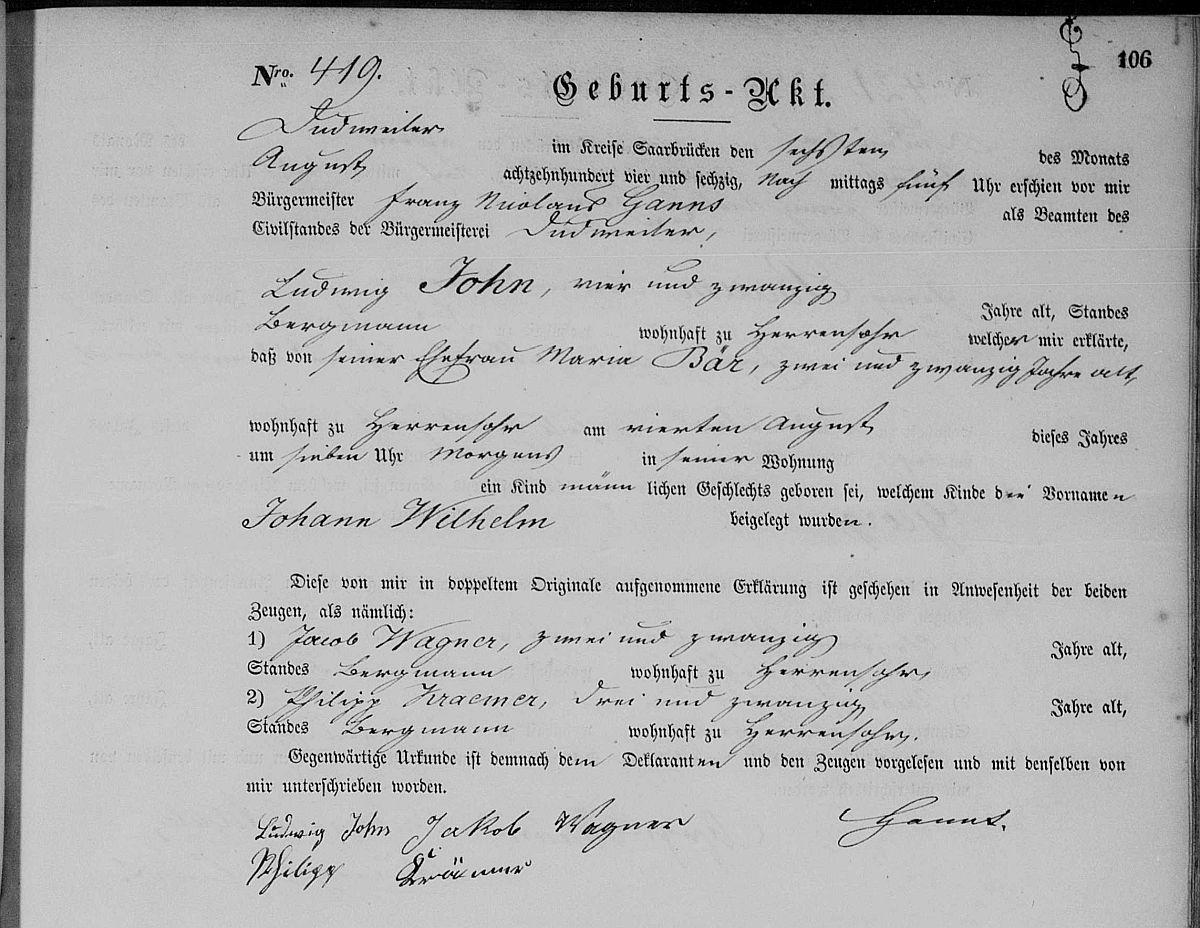 106
Nro. 419.
Geburts-Akt.
Dudweiler im Kreise Saarbrücken den sechsten des Monats
August achtzehnhundert vier und sechzig, Nach mittags fünf Uhr erschien vor mir
Bürgermeister Franz Nicolaus Hanns als Beamten des
Civilstandes der Bürgermeisterei Dudweiler,
Ludwig John, vier und zwanzig Jahre alt, Standes
Bergmann wohnhaft zu Herrensohr welcher mir erklärte,
daß von seiner Ehefrau Maria Bär, zwei und zwanzig Jahre alt,
wohnhaft zu Herrensohr am vierten August dieses Jahres
um sieben Uhr Morgens in seiner Wohnung
ein Kind männlichen Geschlechts geboren sei, welchem Kinde die Vornamen
Johann Wilhelm beigelegt wurden.
Diese von mir in doppeltem Originale aufgenommene Erklärung ist geschehen in Anwesenheit der beiden
Zeugen, als nämlich:
1) Jacob Wagner, zwei und zwanzig Jahre alt,
Standes Bergmann wohnhaft zu Herrensohr,
2) Philipp Kraemer, drei und zwanzig Jahre alt,
Standes Bergmann wohnhaft zu Herrensohr.
Gegenwärtige Urkunde ist demnach dem Deklaranten und den Zeugen vorgelesen und mit denselben von
mir unterschrieben worden.
Ludwig John Jakob Wagner
Philipp Krämer